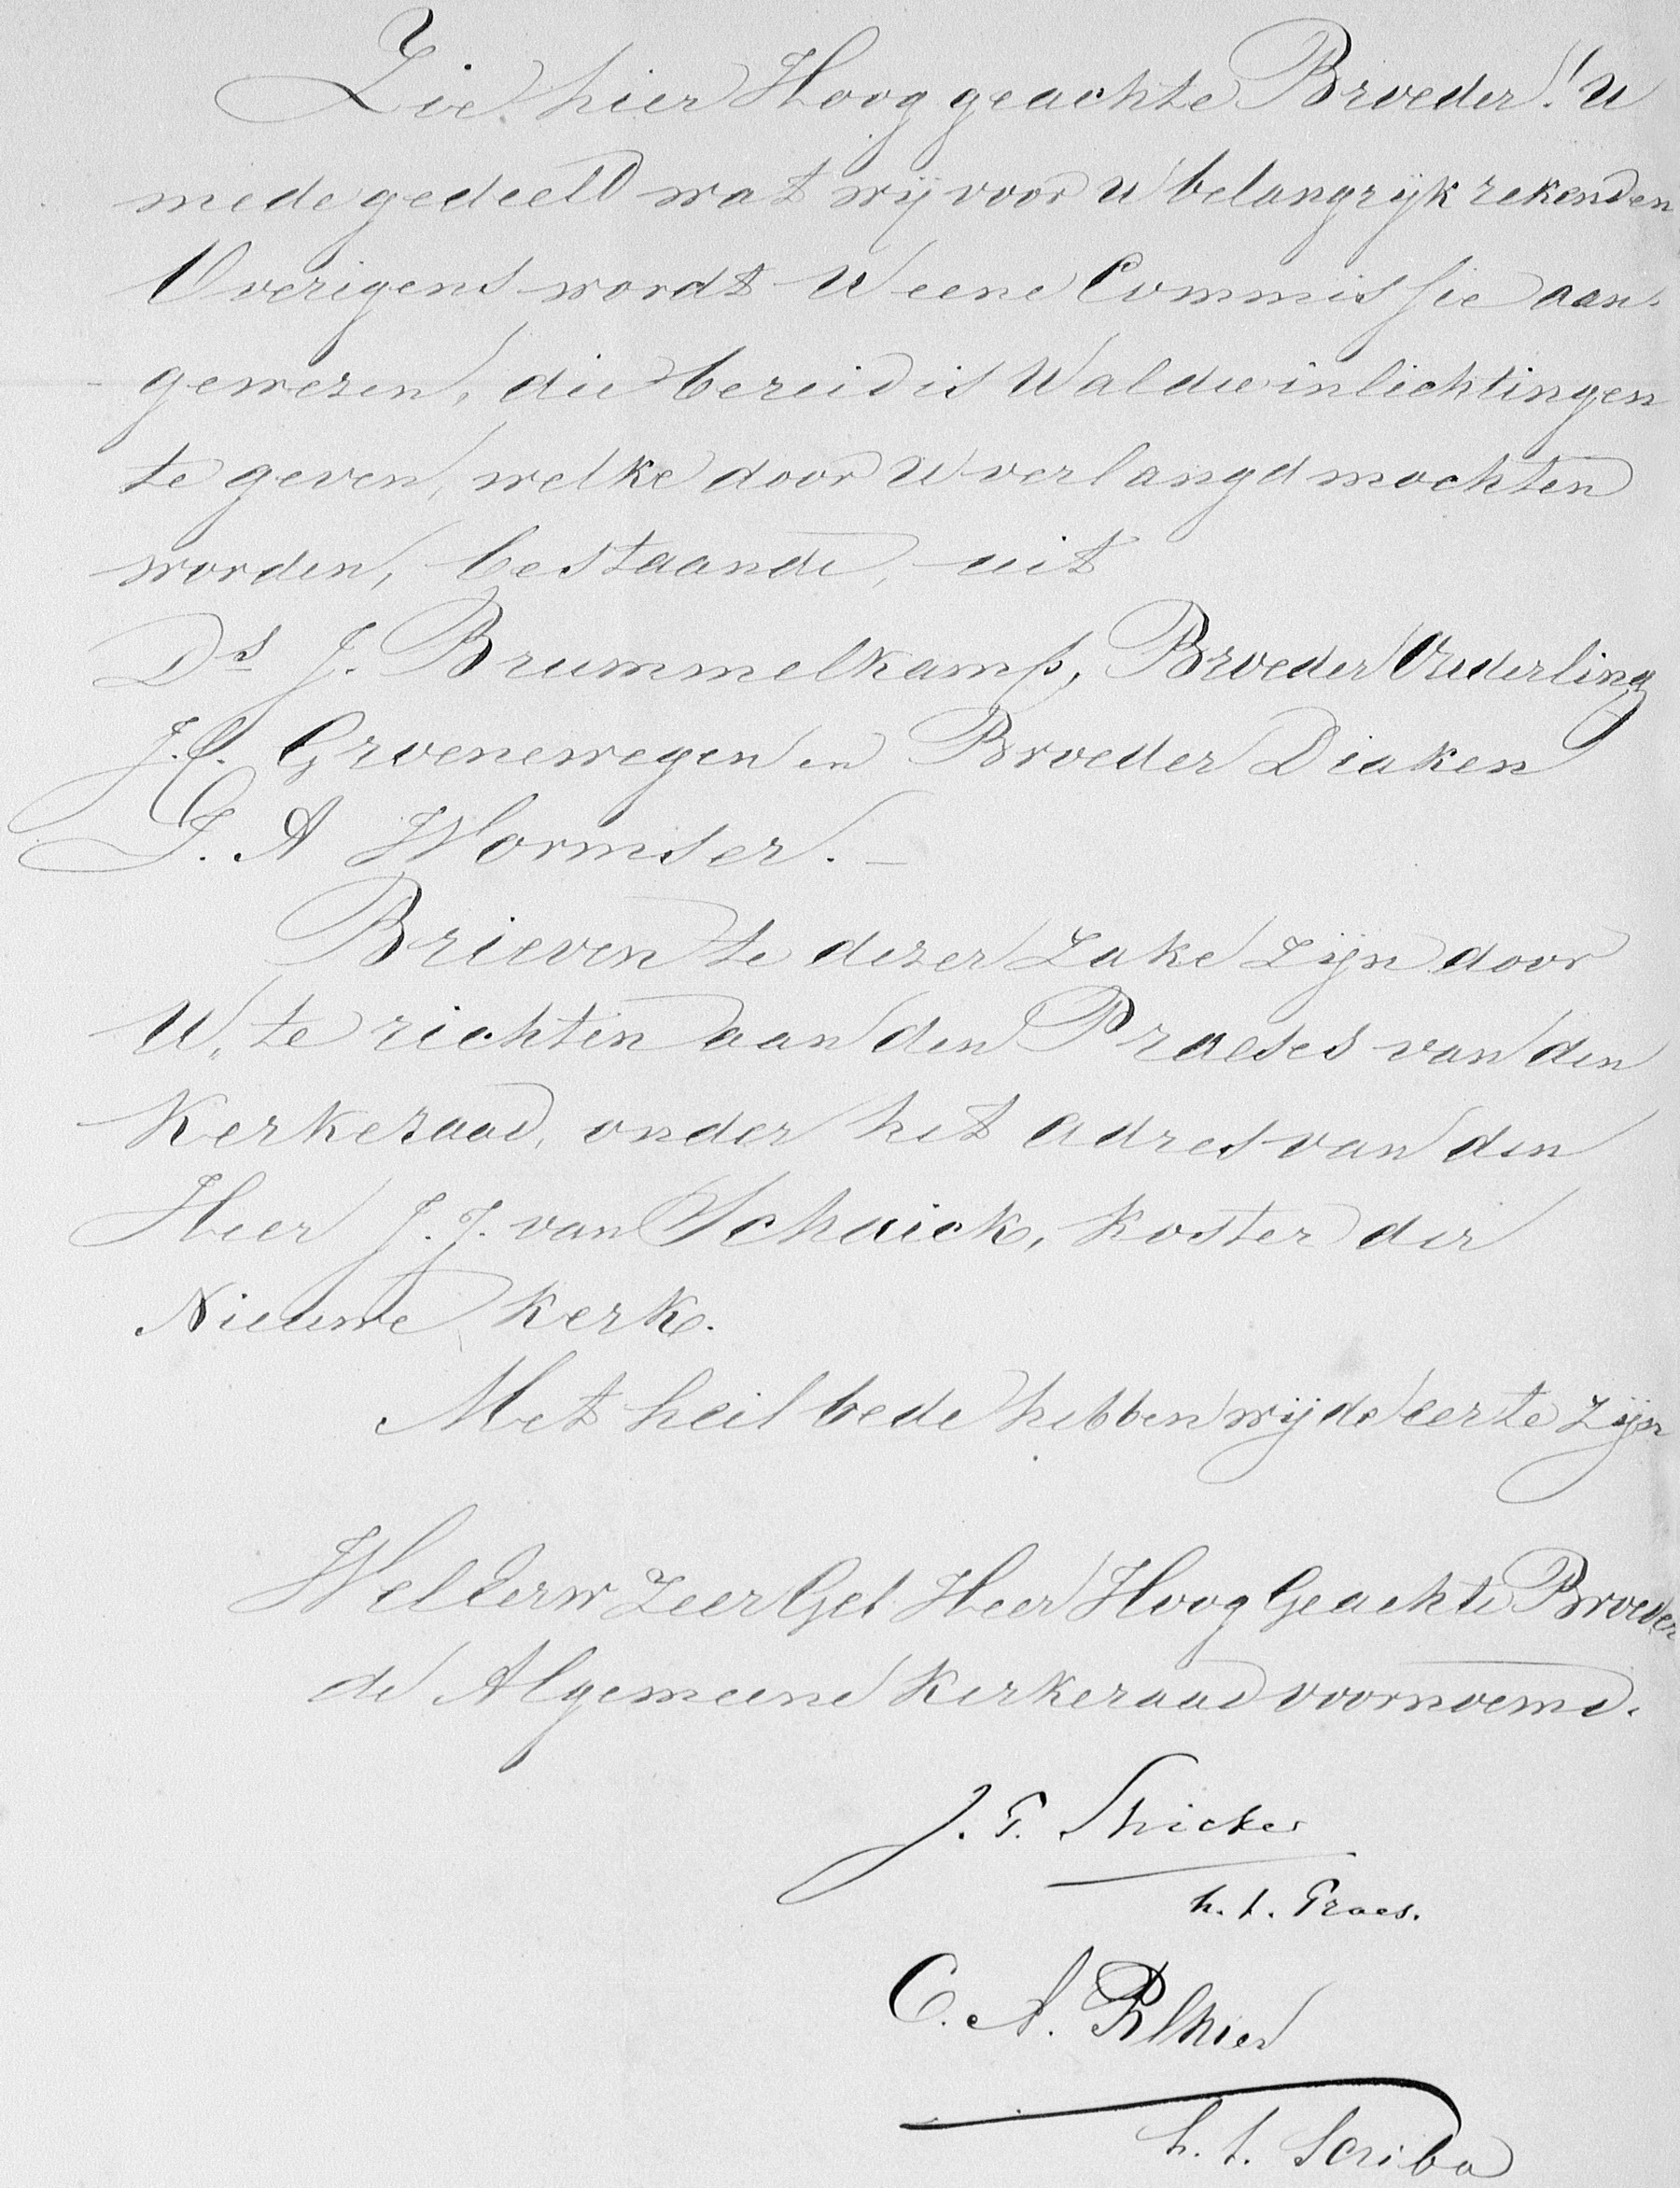 Zie hier Hooggeachte Broeder! U
medegedeeld wat wij voor U belangrijk rekenden
Overigens wordt U eene Commissie aan-
gewezen, die bereid is U al die inlichtingen
te geven, welke door U verlangd mochten
worden, bestaande, uit
Ds J. Brummelkamp, Broeder Ouderling
J. C. Groenewegen en Broeder Diaken
J. A Wormser. –
Brieven te dezer zake zijn door
U, te richten aan den Praeses van den
Kerkeraad, onder het adres van den
Heer J. J. van Schaick, Koster der
Nieuwe Kerk.
Met heilbede hebben wij de eer te zijn
WelEerw ZeerGel Heer Hoog Geachte Broeder
de Algemeene Kerkeraad voornoemd.
h. t. Praes.
C. A.
h. t. Scriba